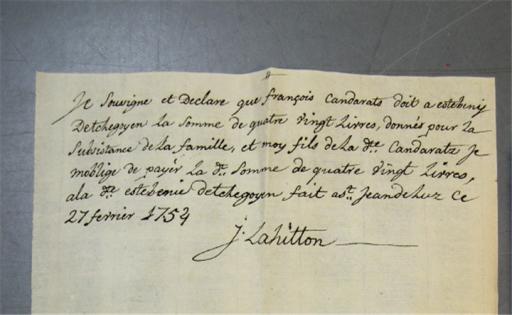 Je Souvigne et Declare que françois Candarats doit a estebeny
Detchegoyen la Somme de quatre Vingt Livres, donnés pour la
Subsistance de la famille, et moy fils de la dte. Candarats Je
moblige de payér La dte. Somme de quatre Vingt Livres,
ala dte. estebenue Detchegoyen fait a st. Jeandeluz Ce
27 fevrier 1754
J. Lahitton